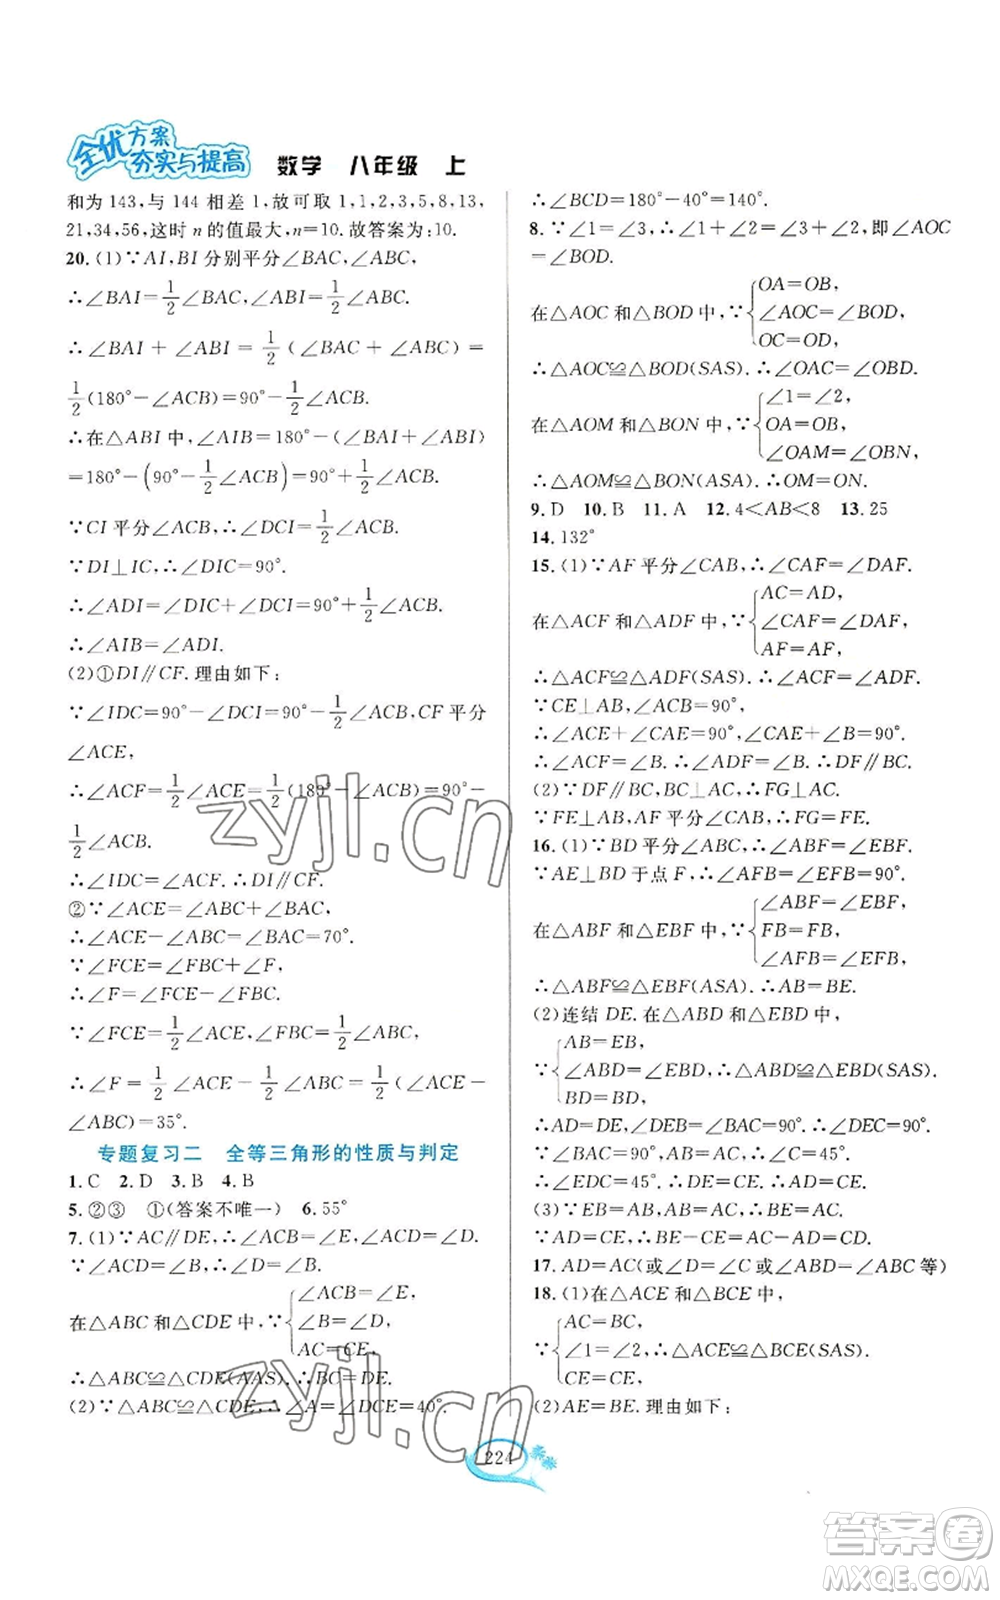 全优方案
夯实与提高 数学 八年级 上
和为 143,与 144 相差 1,故可取 1,1,2,3,5,8,13,
21,34,56,这时 n 的值最大,n=10. 故答案为:10.
20. (1)∵AI,BI 分别平分∠BAC,∠ABC,
∴∠BAI=1/2∠BAC,∠ABI=1/2∠ABC.
∴∠BAI+∠ABI=1/2(∠BAC+∠ABC)=
1/2(180°-∠ACB)=90°-1/2∠ACB.
∴在△ABI 中,∠AIB=180°-(∠BAI+∠ABI)
=180°-(90°-1/2∠ACB)=90°+1/2∠ACB.
∵CI 平分∠ACB,∴∠DCI=1/2∠ACB.
∵DI⊥IC,∴∠DIC=90°.
∴∠ADI=∠DIC+∠DCI=90°+1/2∠ACB.
∴∠AIB=∠ADI.
(2)①DI∥CF. 理由如下:
∵∠IDC=90°-∠DCI=90°-1/2∠ACB,CF 平分
∠ACE,
∴∠ACF=1/2∠ACE=1/2(180°-∠ACB)=90°-
1/2∠ACB.
∴∠IDC=∠ACF. ∴DI∥CF.
②∵∠ACE=∠ABC+∠BAC,
∴∠ACE-∠ABC=∠BAC=70°.
∵∠FCE=∠FBC+∠F,
∴∠F=∠FCE-∠FBC.
∵∠FCE=1/2∠ACE,∠FBC=1/2∠ABC,
∴∠F=1/2∠ACE-1/2∠ABC=1/2(∠ACE-
∠ABC)=35°.
专题复习二 全等三角形的性质与判定
1. C 2. D 3. B 4. B
5. ②③ ①(答案不唯一) 6. 55°
7. (1)∵AC∥DE,∴∠ACB=∠E,∠ACD=∠D.
∵∠ACD=∠B,∴∠D=∠B.
在△ABC 和△CDE 中,∵{∠ACB=∠E,
∠B=∠D,
AC=CE,
∴△ABC≌△CDE(AAS). ∴BC=DE.
(2)∵△ABC≌△CDE,∴∠A=∠DCE=40°.
∴∠BCD=180°-40°=140°.
8. ∵∠1=∠2,∴∠1+∠3=∠2+∠3,即∠AOC
=∠BOD.
在△AOC 和△BOD 中,∵{OA=OB,
∠AOC=∠BOD,
OC=OD,
∴△AOC≌△BOD(SAS). ∴∠OAC=∠OBD.
在△AOM 和△BON 中,∵{∠1=∠2,
OA=OB,
∠OAM=∠OBN,
∴△AOM≌△BON(ASA). ∴OM=ON.
9. D 10. B 11. A 12. 4<AB<8 13. 25
14. 132°
15. (1)∵AF 平分∠CAB,∴∠CAF=∠DAF.
在△ACF 和△ADF 中,∵{AC=AD,
∠CAF=∠DAF,
AF=AF,
∴△ACF≌△ADF(SAS). ∴∠ACF=∠ADF.
∵CE⊥AB,∠ACB=90°,
∴∠ACE+∠CAE=90°,∠CAE+∠B=90°.
∴∠ACF=∠B. ∴∠ADF=∠B. ∴DF∥BC.
(2)∵DF∥BC,BC⊥AC,∴FG⊥AC.
∵FE⊥AB,AF 平分∠CAB,∴FG=FE.
16. (1)∵BD 平分∠ABC,∴∠ABF=∠EBF.
∵AE⊥BD 于点 F,∴∠AFB=∠EFB=90°.
在△ABF 和△EBF 中,∵{∠ABF=∠EBF,
FB=FB,
∠AFB=∠EFB,
∴△ABF≌△EBF(ASA). ∴AB=BE.
(2)连结 DE. 在△ABD 和△EBD 中,
∵{AB=EB,
∠ABD=∠EBD,∴△ABD≌△EBD(SAS).
BD=BD,
∴∠DEB=∠BAC=90°. ∴∠DEC=90°.
∴∠EDC=45°. ∴∠C=45°.
(3)∵EB=AB,AB=AC,∴EB=AC.
∵AD=DE=CE,∴AB+AD=BC.
17. AD=AC(或∠D=∠C 或∠ABD=∠ABC 等)
18. (1)在△ACE 和△BCE 中,
∵{AC=BC,
∠1=∠2,∴△ACE≌△BCE(SAS).
CE=CE,
(2)AE=BE. 理由如下:
224
zyjl.cn
zyjl.cn
答案卷
MXQE.COM